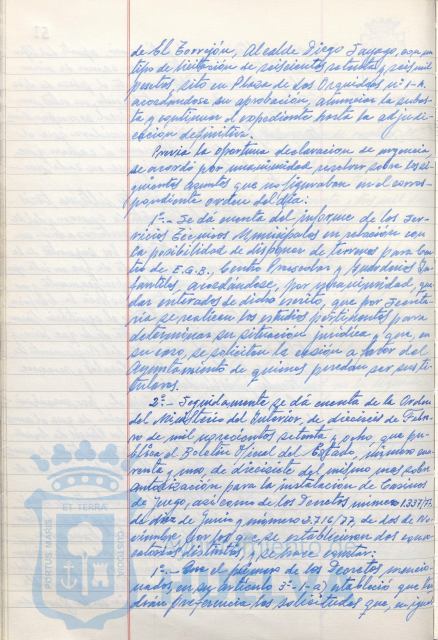 de El Torrejón, Alcalde Diego Sayago, con un
tipo de licitación de seiscientas setenta y seis mil
pesetas, sito en Plaza de las Orquídeas nº 1-A.
acordándose su aprobación, anunciar la subas-
ta y continuar el expediente hasta la adjudi-
cación definitiva.
Previa la oportuna declaración de urgencia,
se acordó por unanimidad resolver sobre los si-
guientes asuntos que no figuraban en el corres-
pondiente orden del día:
1º.- Se dá cuenta del informe de los Ser-
vicios Técnicos Municipales en relación con
la posibilidad de disponer de terrenos para Cen-
tros de E.G.B., Centro Preescolar y Guarderías In-
fantiles, acordándose, por unanimidad, que-
dar enterados de dicho escrito, que por Secreta-
ría se realicen los estudios pertinentes para
determinar su situación jurídica y que, en
su caso, se solicite la cesión a favor del
Ayuntamiento de quienes puedan ser sus ti-
tulares.
2º.- Seguidamente se dá cuenta de la Orden
del Ministerio del Interior, de dieciseis de Febre-
ro de mil novecientos setenta y ocho, que pu-
blica el Boletín Oficial del Estado, número cua-
renta y uno, de diecisiete del mismo mes sobre
autorización para la instalación de Casinos
de Juego, así como de los Decretos número 1.337/77,
de diez de Junio y número 2.716/77, de dos de No-
viembre, por los que se establecieron dos
distintos y se hace constar:
1º.- Que el primero de los Decretos mencio-
nados, en su artículo 3º-1-a) estableció que ten-
drán preferencia las solicitudes que, en igual
PORTUS MARIS
ET TERRÆ
CUSTODIA